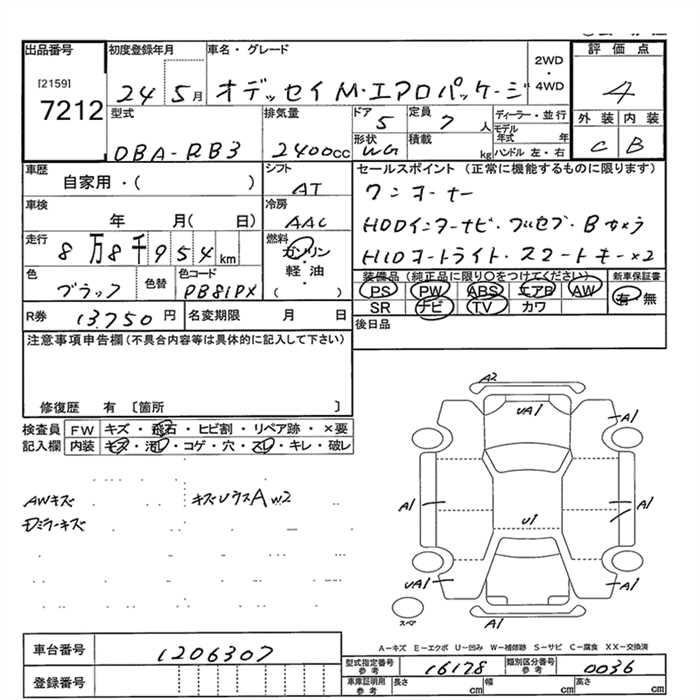 出品番号 初度登録年月 車名・グレード 評価点
[2159] 7212
24 5月 オデッセイ M・エアロパッケージ 2WD・4WD 4
型式 排気量 ドア 5 定員 7人 ディーラー・並行 外装 内装
DBA-RB3 2400cc 形状 WG 積載 kg モデル年式 年 ハンドル 左・右 C B
車歴 自家用・( ) シフト AT セールスポイント (正常に機能するものに限ります)
ワンオーナー
車検 年 月( 日) 冷房 AAC HDDインターナビ・フルセブ・Bカメラ
走行 8万8千954km 燃料 ガソリン・軽油・( ) HIDオートライト・スマートキー×2
色 ブラック 色替 色コード PB81PX
装備品(純正品に限り○をつけてください) 新車保証書
PS PW ABS エアB AW 有・無
SR ナビ TV カワ
R券 13,750円 名変期限 月 日 後日品
注意事項申告欄(不具合内容等は具体的に記入して下さい)
修復歴 有 〔箇所 〕
検査員記入欄 FW キズ・飛石・ヒビ割・リペア跡・×要
内装 キズ・汚レ・コゲ・穴・スレ・キレ・破レ
AWキズ キズUウスA W2
Dミラーキズ
A2
UA1
A1
A1 A1
U1
UA1 A1
A1
スペア
A-キズ E-エクボ U-凹み W-補修跡 S-サビ C-腐食 XX-交換済
車台番号 1206307
型式指定番号 参考 16178 類別区分番号 参考 0036
登録番号 車庫証明用 参考 長さ cm 幅 cm 高さ cm